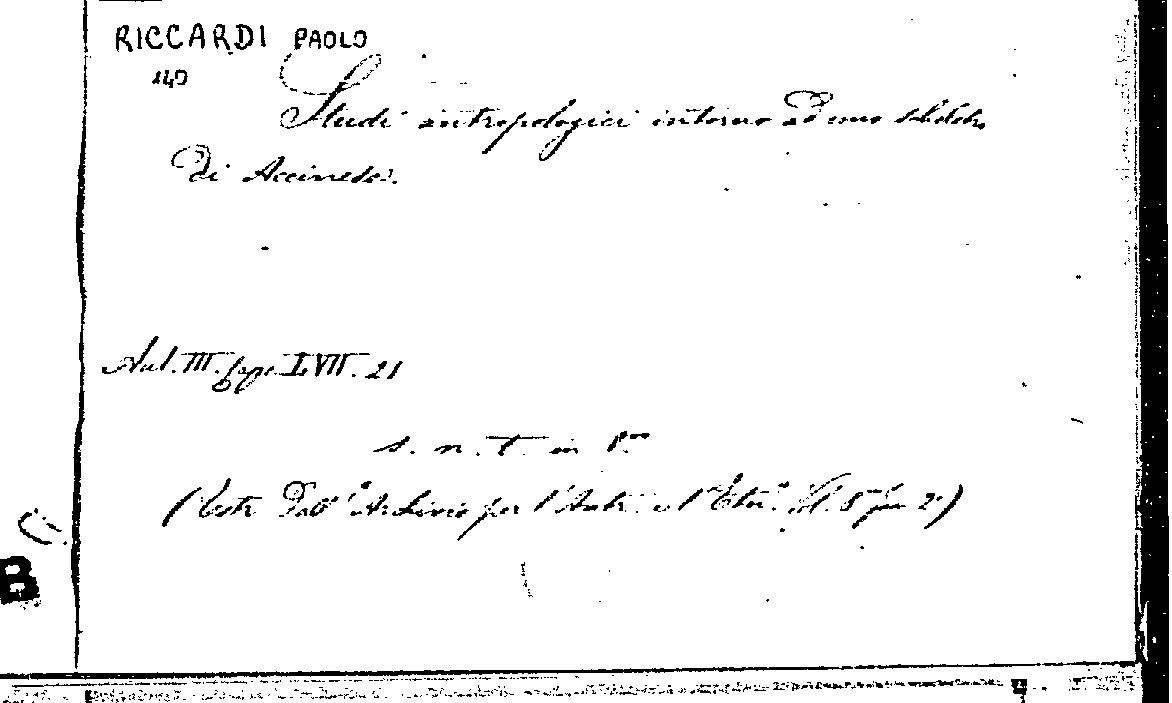 RICCARDI PAOLO
140
Studi antropologici intorno ad uno scheletro
di Accinese.
Ant. III. fasc. I. VII. 21
s. n. t. in 8°
(Estr. Dall' Archivio per l'Antr. e l'Etn. Vol. 8° fasc 2°)
B